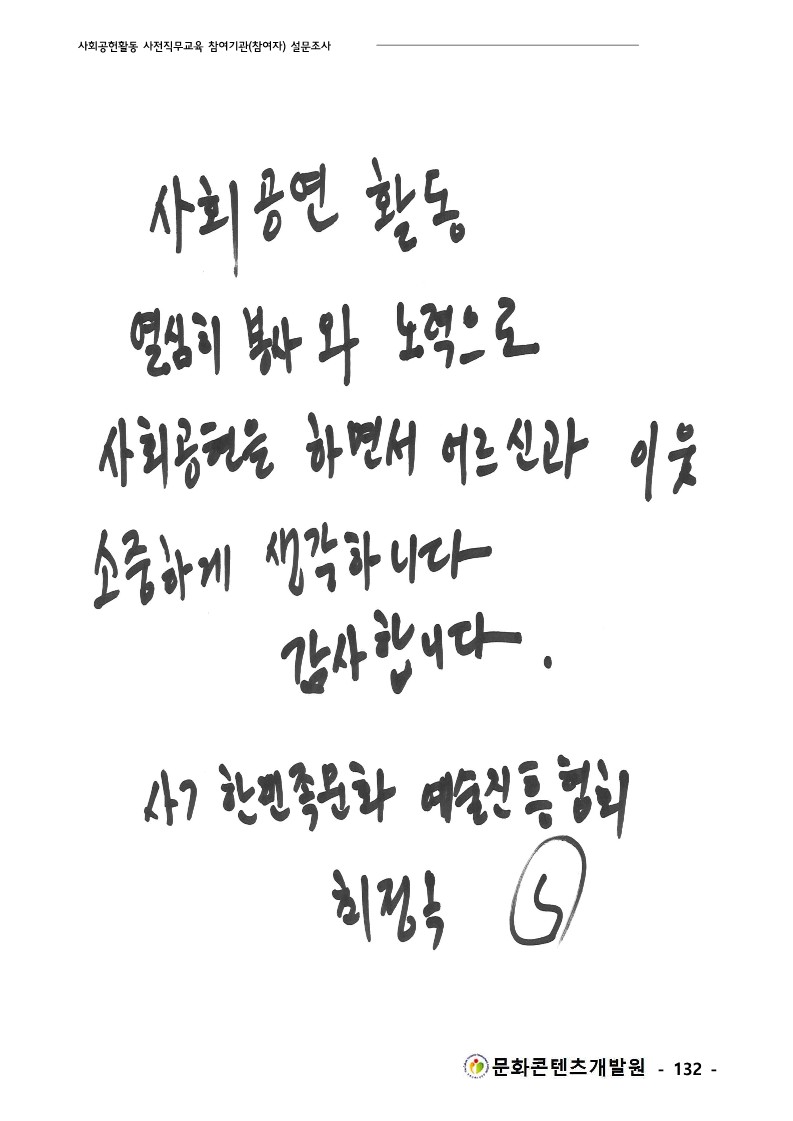 사회공헌활동 사전직무교육 참여기관(참여자) 설문조사
사회공연 활동
열심히 봉사와 노력으로
사회공헌을 하면서 어르신과 이웃
소중하게 생각하니다
감사합니다.
한민족문화 예술진흥협회
문화콘텐츠개발원 - 132 -